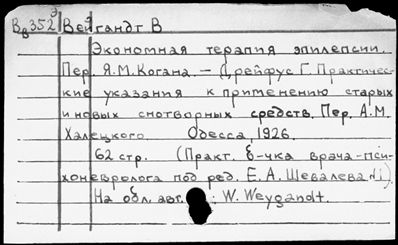 Вв352 Вейгандт В
Экономная терапия эпилепсии.
Пер. Я.М.Когана. — Дрейфус Г. Практичес-
кие указания к применению старых
и новых снотворных средств. Пер. А.М.
Халецкого. Одесса, 1926.
62 стр. (Практ. б-чка врача-пси-
хоневролога под ред. Е.А. Шевалева
На обл. авг. : W. Weygandt.